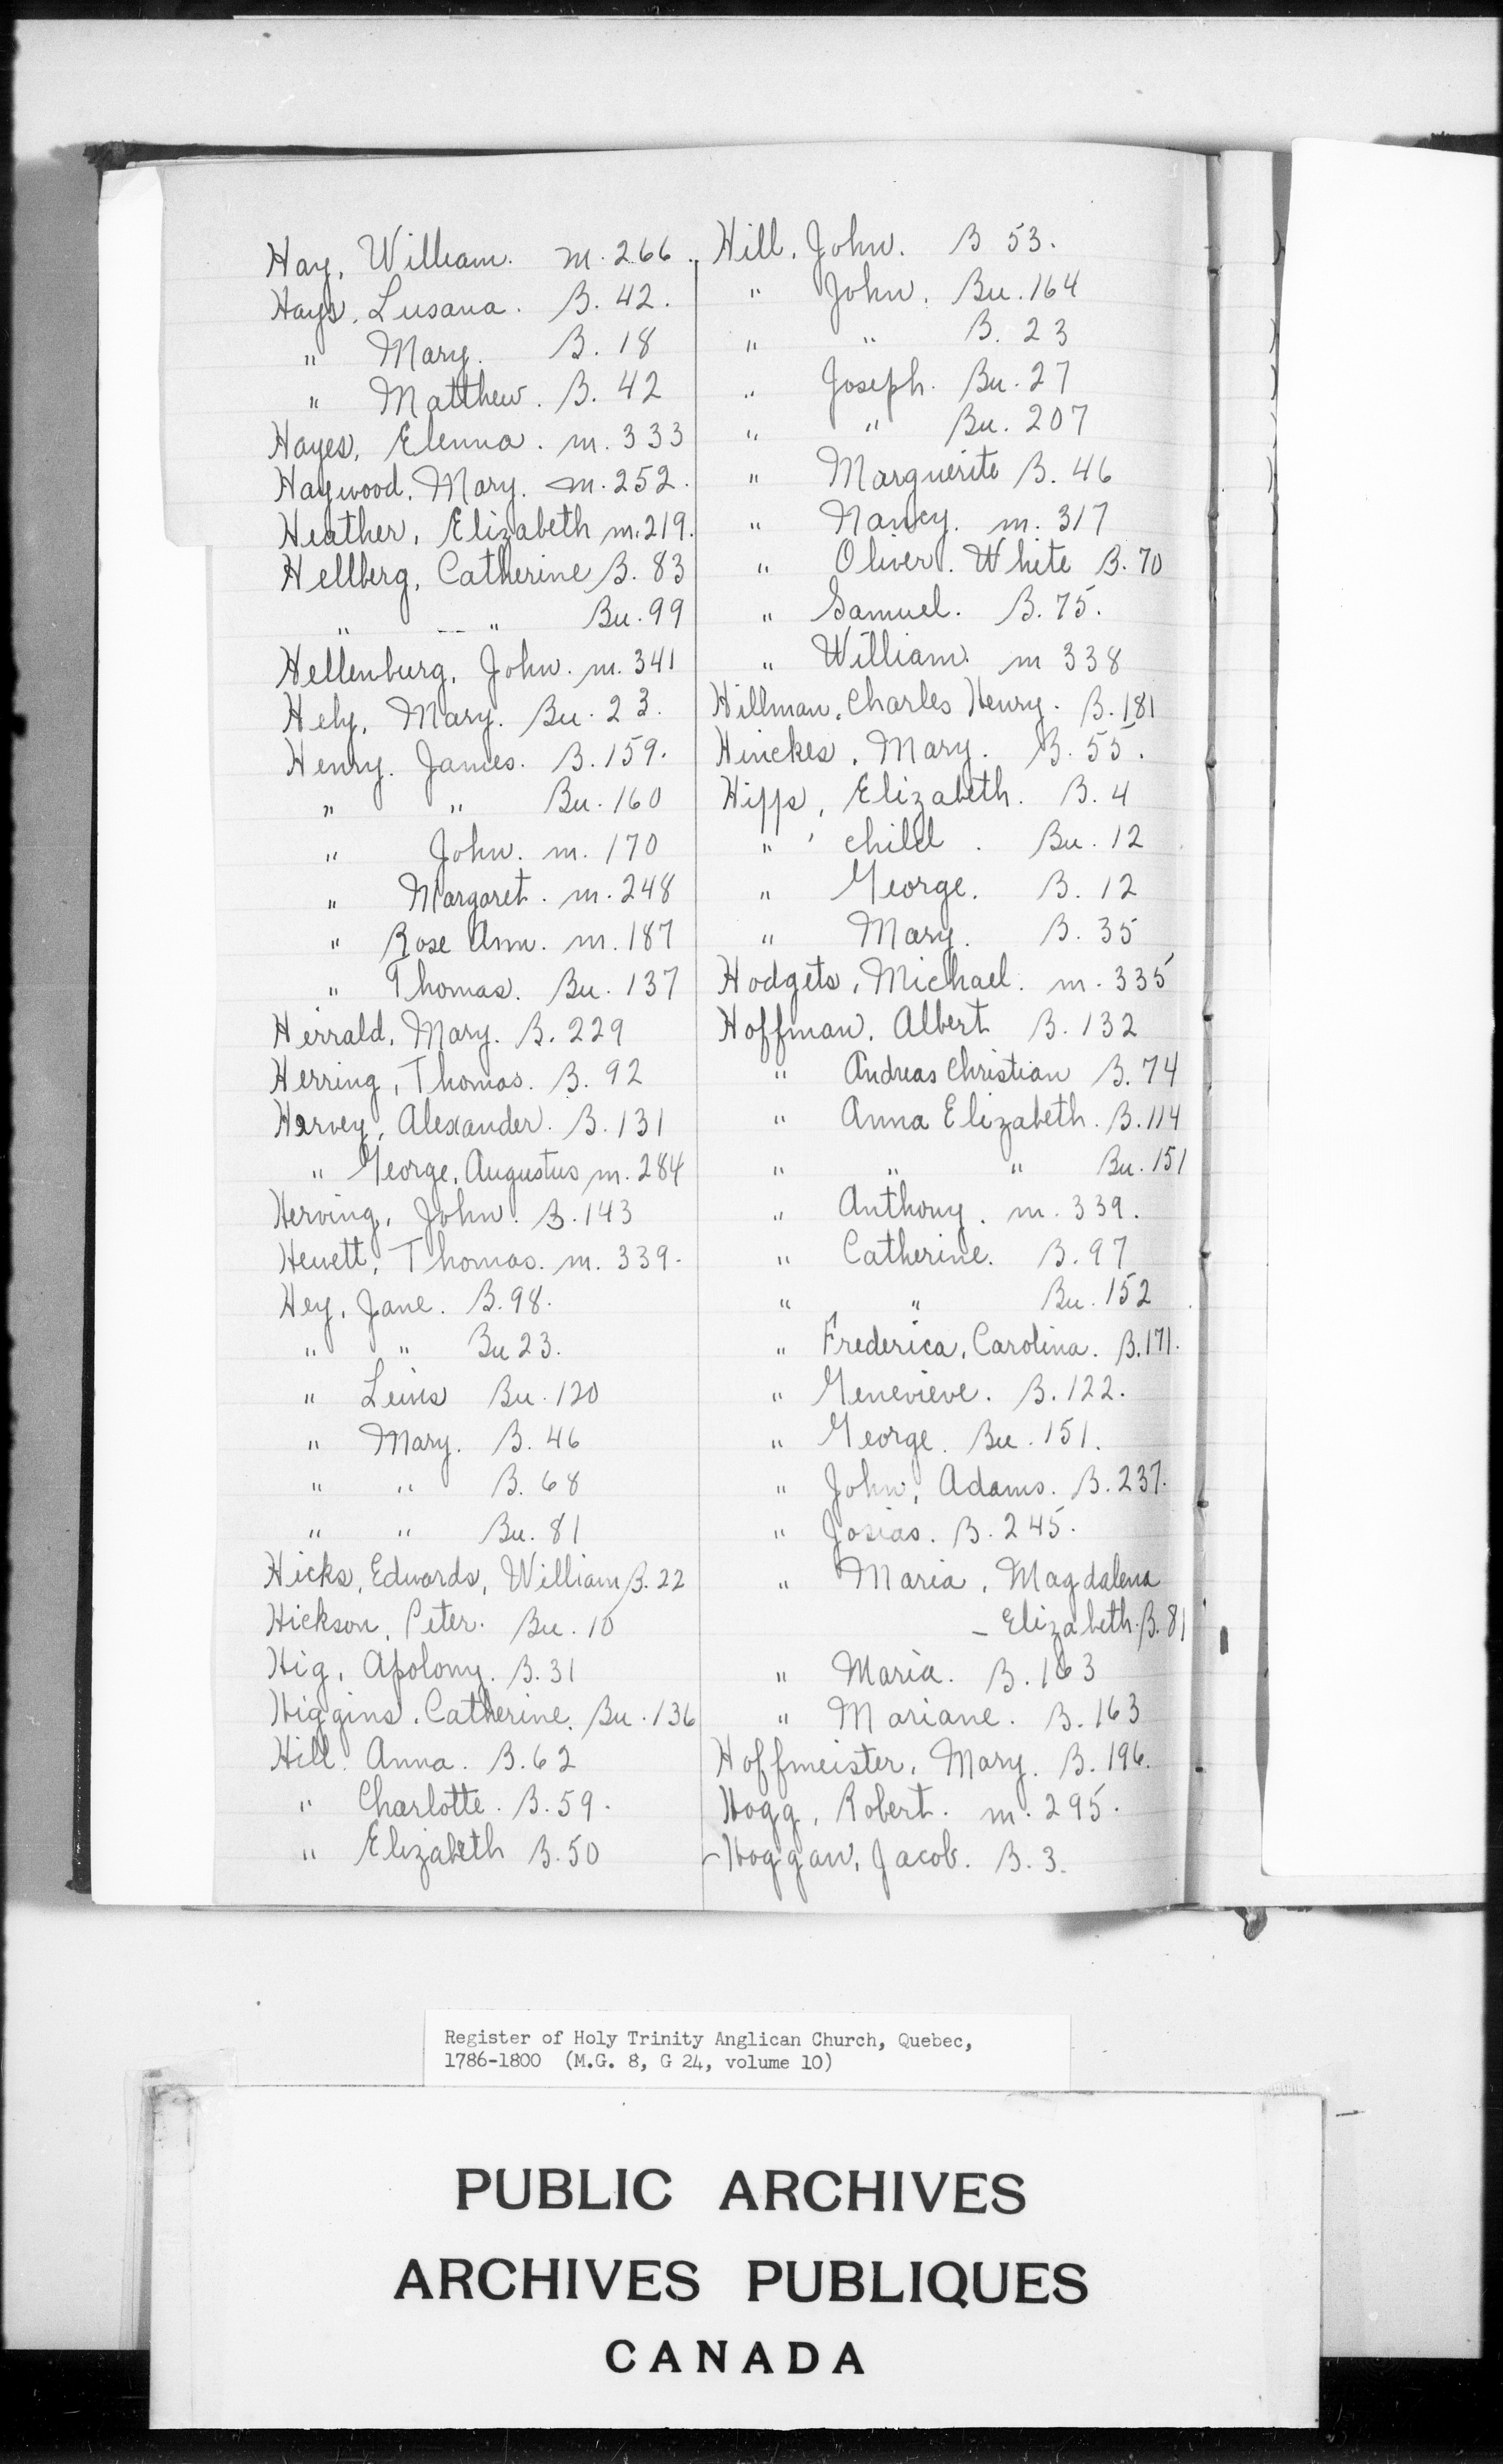 Hay, William. m. 266.
Hays, Lusana. B. 42.
" Mary. B. 18
" Matthew. B. 42
Hayes, Elenna. m. 333
Haywood, Mary. m. 252.
Heather, Elizabeth m. 219.
Hellberg, Catherine B. 83
" " Bu. 99
Hellenburg, John. m. 341
Hely, Mary. Bu. 23.
Henry. James. B. 159.
" " Bu. 160
" John. m. 170
" Margaret. m. 248
" Rose Ann. m. 187
" Thomas. Bu. 137
Herrald, Mary. B. 229
Herring, Thomas. B. 92
Harvey, Alexander. B. 131
" George, Augustus m. 284
Herving, John. B. 143
Hewett, Thomas. m. 339.
Hey, Jane. B. 98.
" " Bu 23.
" Lewis Bu. 120
" Mary. B. 46
" " B. 68
" " Bu. 81
Hicks, Edwards, William B. 22
Hickson, Peter. Bu. 10
Hig, Apolony. B. 31
Higgins, Catherine. Bu. 136
Hill. Anna. B. 62
" Charlotte. B. 59.
" Elizabeth B. 50
Hill, John. B 53.
" John. Bu. 164
" " B. 23
" Joseph. Bu. 27
" " Bu. 207
" Marguerite B. 46
" Nancy. m. 317
" Oliver. White B. 70
" Samuel. B. 75.
" William. m 338
Hillman, Charles Henry. B. 181
Hinckes, Mary. B. 55.
Hipps, Elizabeth. B. 4
" child. Bu. 12
" George. B. 12
" Mary. B. 35
Hodgets, Michael. m. 335
Hoffman, Albert B. 132
" Andreas Christian B. 74
" Anna Elizabeth. B. 114
" " " Bu. 151
" Anthony. m. 339.
" Catherine. B. 97
" " Bu. 152
" Frederica, Carolina. B. 171.
" Genevieve. B. 122.
" George. Bu. 151.
" John, Adams. B. 237.
" Josias. B. 245.
" Maria, Magdalena
- Elizabeth. B. 81
" Maria. B. 163
" Mariane. B. 163
Hoffmeister, Mary. B. 196.
Hogg, Robert. m. 295.
Hoggan, Jacob. B. 3.
Register of Holy Trinity Anglican Church, Quebec,
1786-1800 (M.G. 8, G 24, volume 10)
PUBLIC ARCHIVES
ARCHIVES PUBLIQUES
CANADA